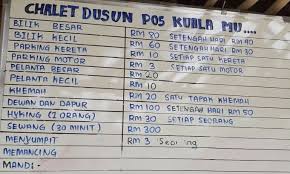 CHALET DUSUN POS KUALA MU....
BILIK BESAR RM 80 SETENGAH HARI RM 40
BILIK KECIL RM 60 SETENGAH HARI RM 30
PARKING KERETA RM 10 SETIAP SATU KERETA
PARKING MOTOR RM 3 SETIAP SATU MOTOR
PELANTA BESAR RM 20
PELANTA KECIL RM 10
KHEMAH RM 20 SATU TAPAK KHEMAH
DEWAN DAN DAPUR RM 100 SETENGAH HARI RM 50
HYKING (1 ORANG) RM 30 SETIAP SEORANG
SEWANG (30 MINIT) RM 300
MENYUMPIT RM 3
MEMANCING
MANDI :-